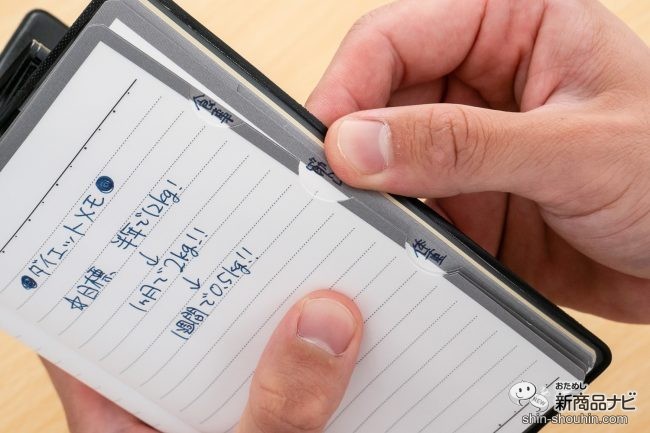 ダイエットメモ
目標 半年で12kg!
↓
1ヶ月で2kg!!
↓
1週間で0.5kg!!
食事
体重
おためし
新商品ナビ
shin-shouhin.com
NEW